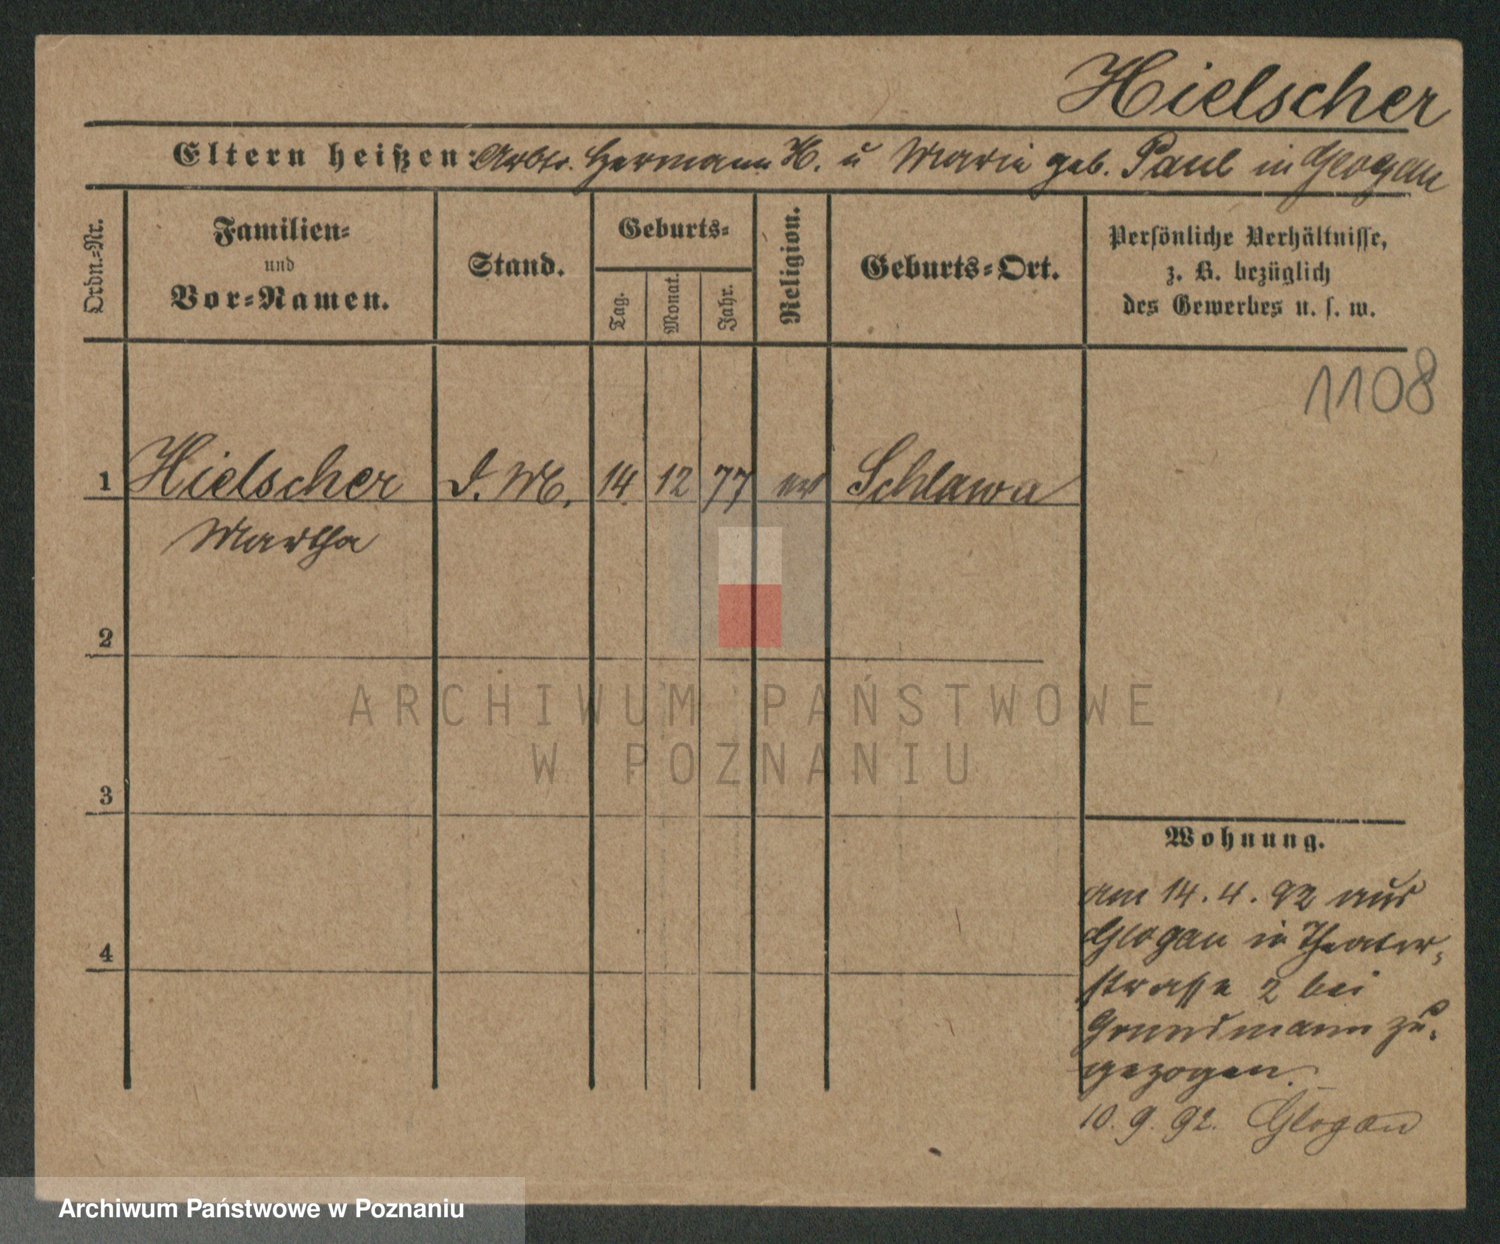 Hielscher
Eltern heißen: Arbtr. Hermann H. u Marie geb. Paul in Glogau
Ordn.-Nr.
Familien-
und
Vor-Namen.
Stand.
Geburts-
Tag.
Monat.
Jahr.
Religion.
Geburts-Ort.
Persönliche Verhältnisse,
z. B. bezüglich
des Gewerbes u. s. w.
1108
1 Hielscher D. M. 14 12 77 ev Schlawa
Martha
2
3
4
Wohnung.
am 14.4.92 aus
Glogau in Theater-
straße 2 bei
Grundmann zu-
gezogen.
10.9.92. Glogau
ARCHIWUM PAŃSTWOWE
W POZNANIU
Archiwum Państwowe w Poznaniu